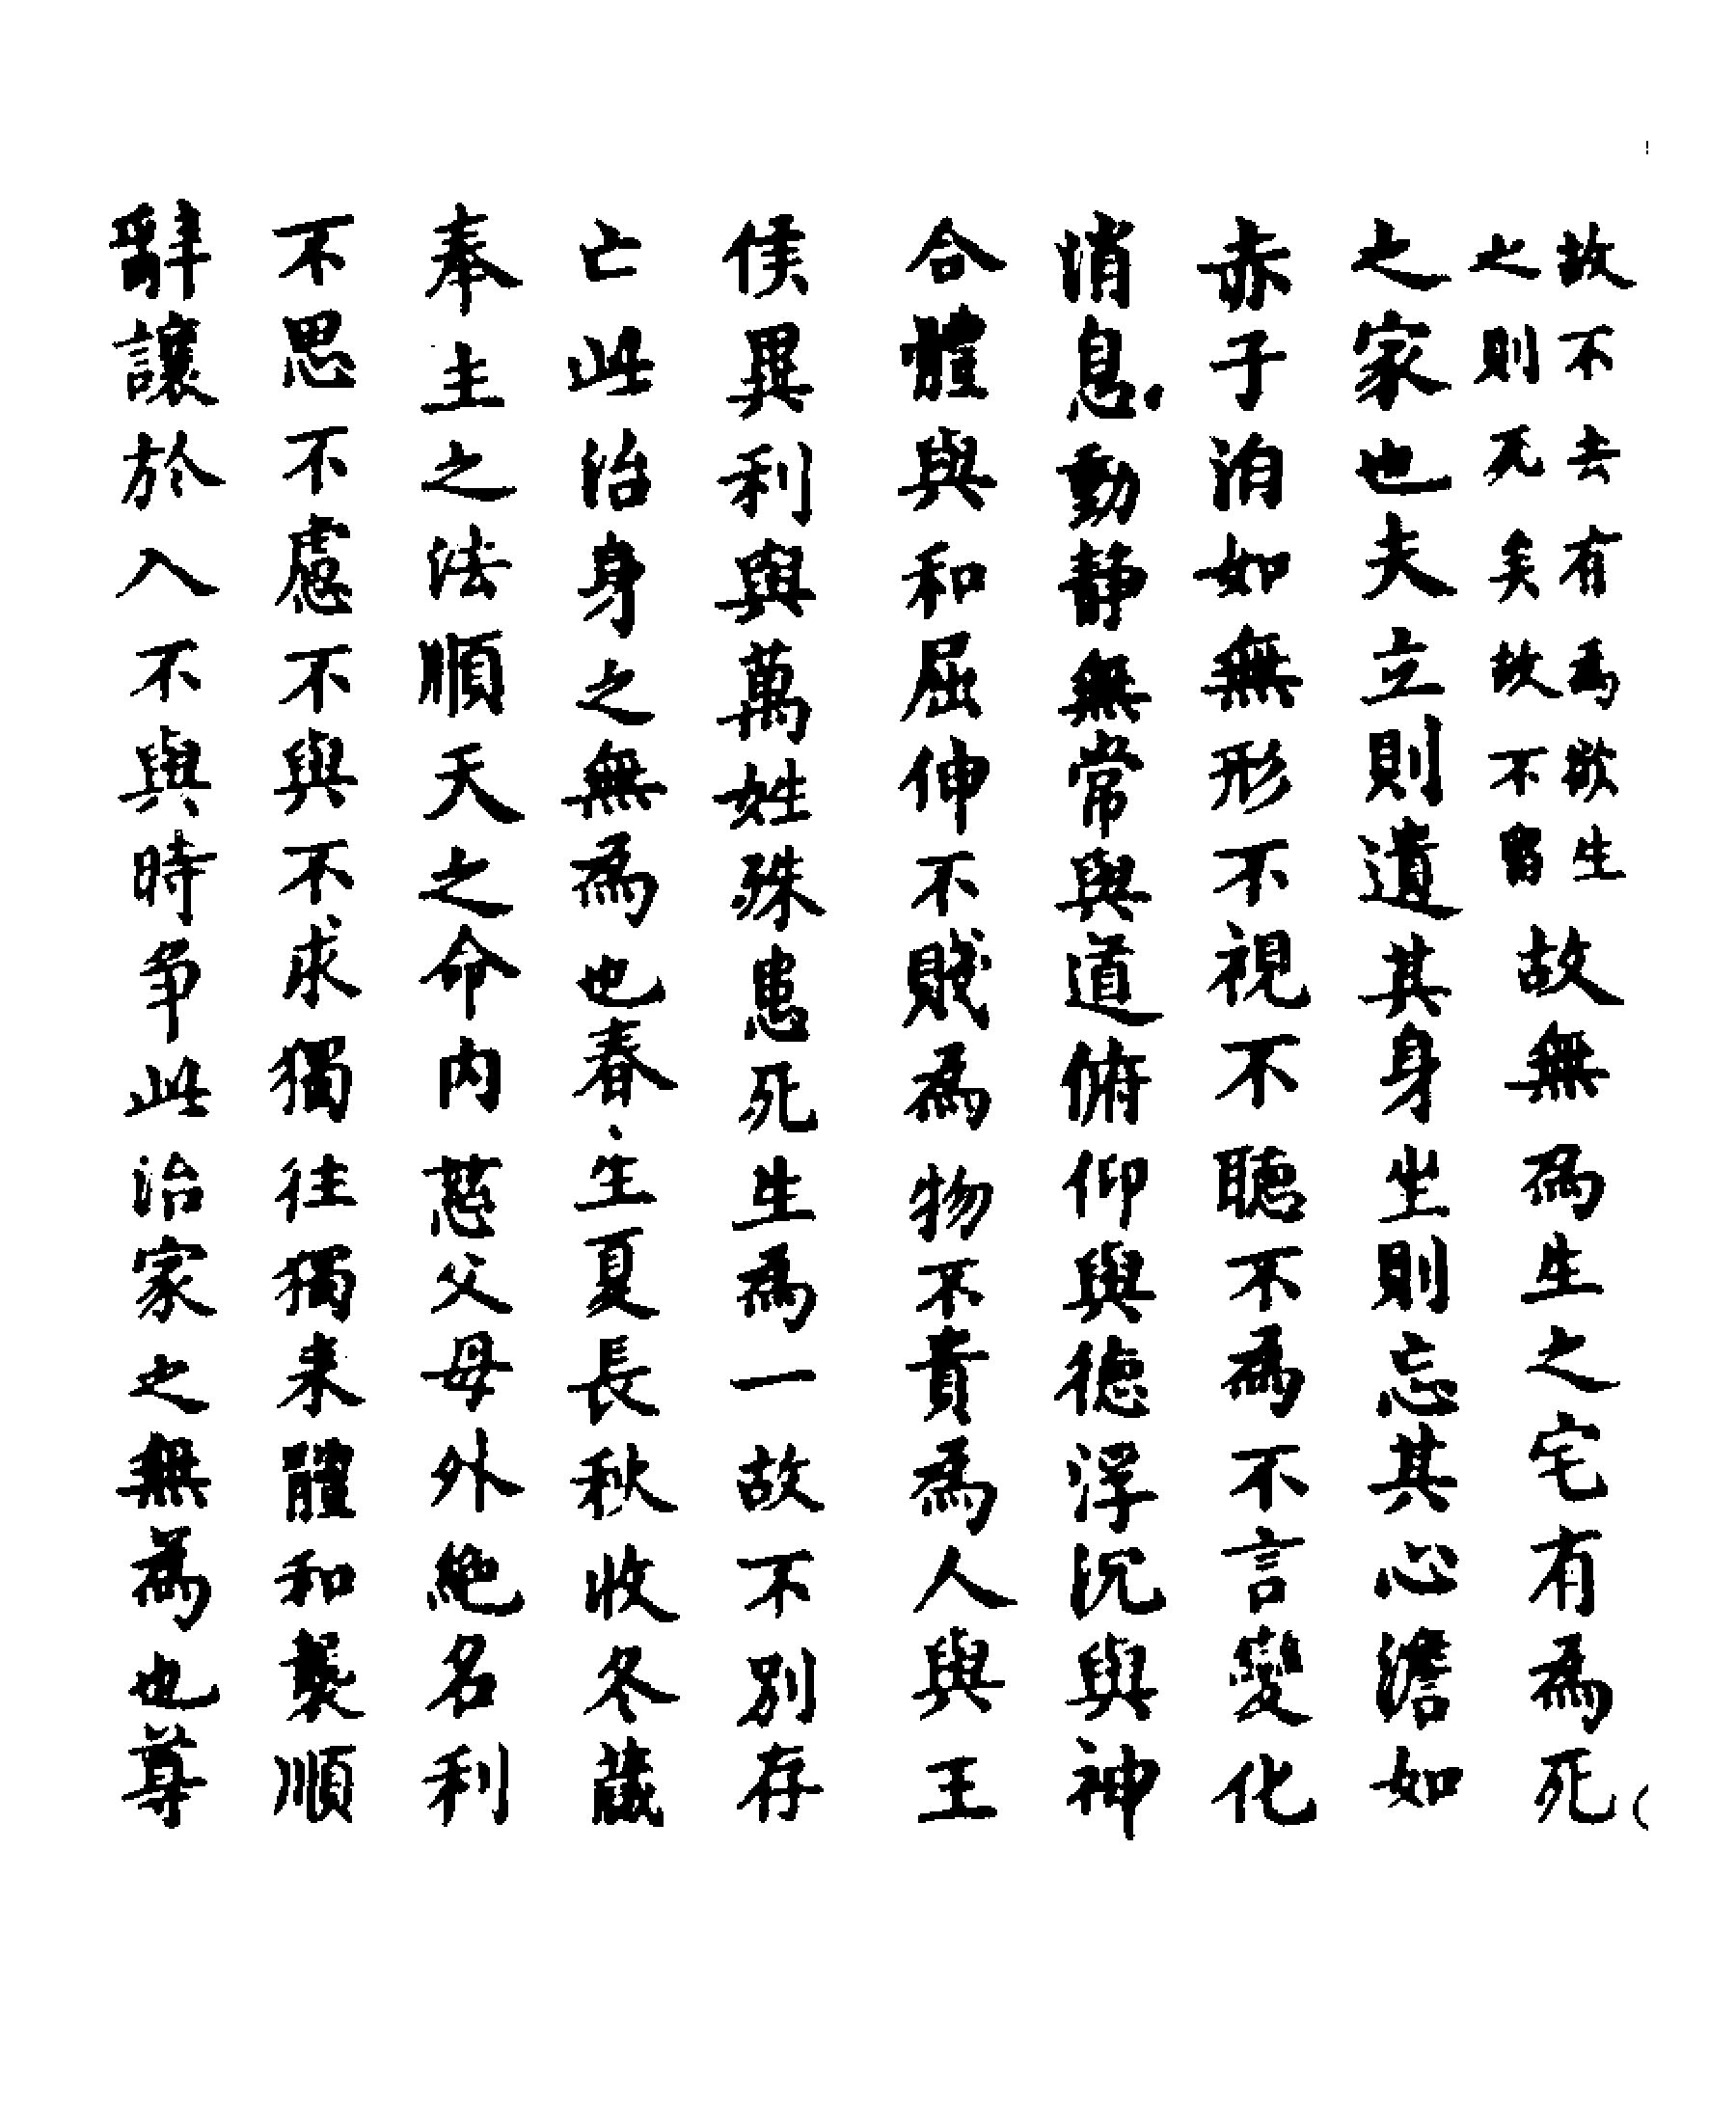 故不去有為欲生
之則死矣故不留
故無為生之宅有為死
之家也夫立則遺其身坐則忘其心澹如
赤子泊如無形不視不聽不為不言變化
消息動静無常與道俯仰與徳浮沉與神
合體與和屈伸不賤為物不貴為人與王
侯異利與萬姓殊患死生為一故不別存
亡此治身之無為也春生夏長秋收冬藏
奉主之法順天之命内慈父母外絶名利
不思不慮不與不求獨往獨来體和襲順
辭讓於入不與時争此治家之無為也尊